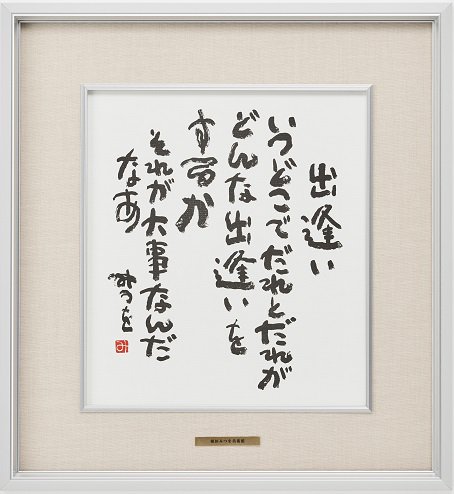 出逢い
いつどこでだれとだれが
どんな出逢いを
するか
それが大事なんだ
なあ
みつを
相田みつを美術館